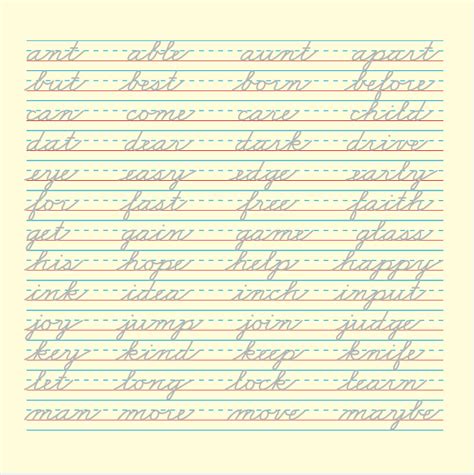 ant able aunt apart
but best born before
can come care child
dat dear dark drive
eye easy edge early
for fast free faith
get gain game glass
his hope help happy
ink idea inch input
joy jump join judge
key kind keep knife
let long lock learn
man more move maybe